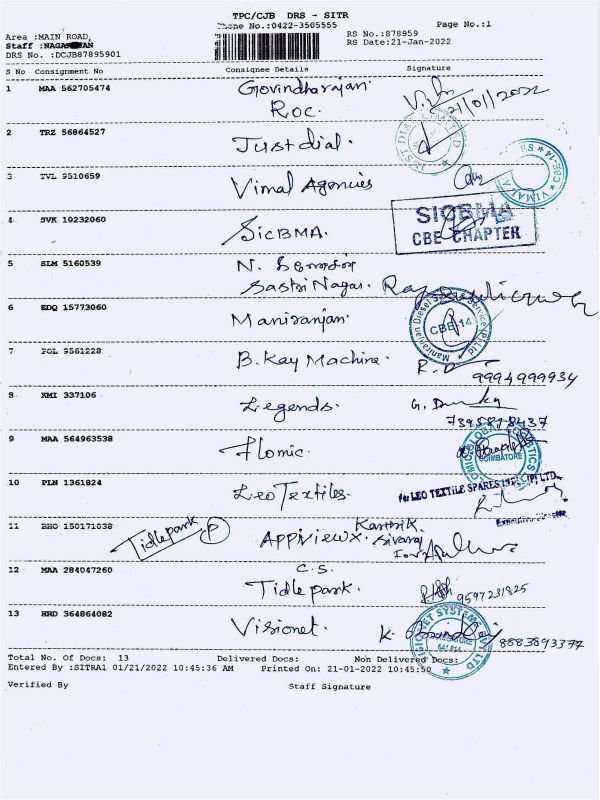 TPC/CJB DRS - SITR
Phone No.:0422-3505555
Page No.:1
Area :MAIN ROAD,
RS No.:878959
Staff :
RS Date:21-Jan-2022
DRS No. :DCJB87895901
S No Consignment No Consignee Details Signature
1 MAA 562705474 Govindharajan
Roc. 21/01/2022
2 TRZ 56864527 Justdial.
3 TVL 9510659 Vimal Agencies
4 SVK 10232060 SICBMA.
SICBMA
CBE CHAPTER
5 SLM 5160539 N.
Sastri Nagar.
6 EDQ 15773060 Maniranjan.
Maniranjan Diesel Service (P) Ltd
CBE-14
7 POL 9561228 B. Kay Machine. R.D
9994999934
8 KMI 337106 Legends. G.
7395898437
9 MAA 564963538 Flomic.
COIMBATORE
10 PLN 1361824 Leo Textiles. For LEO TEXTILE SPARES (P) LTD.
11 BHO 150171038 Tidlepark P Appviewx. Karthik
Sivaraj
12 MAA 284047260 C.S.
Tidle park. 9597231825
13 HRD 364864082 Visionet. K. 8883893377
641 014
Total No. Of Docs: 13 Delivered Docs: Non Delivered Docs:
Entered By :SITRA1 01/21/2022 10:45:36 AM Printed On: 21-01-2022 10:45:50
Verified By Staff Signature